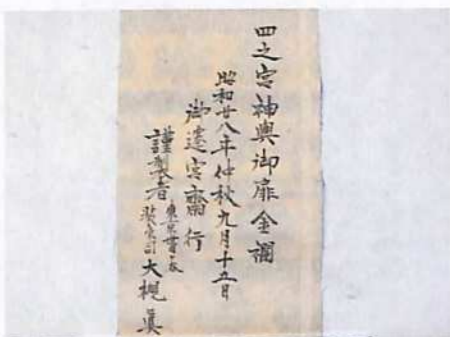 四之宮神輿御扉金襴
昭和廿八年仲秋九月十五日
御遷宮齋行
謹製者
装束司 大槻